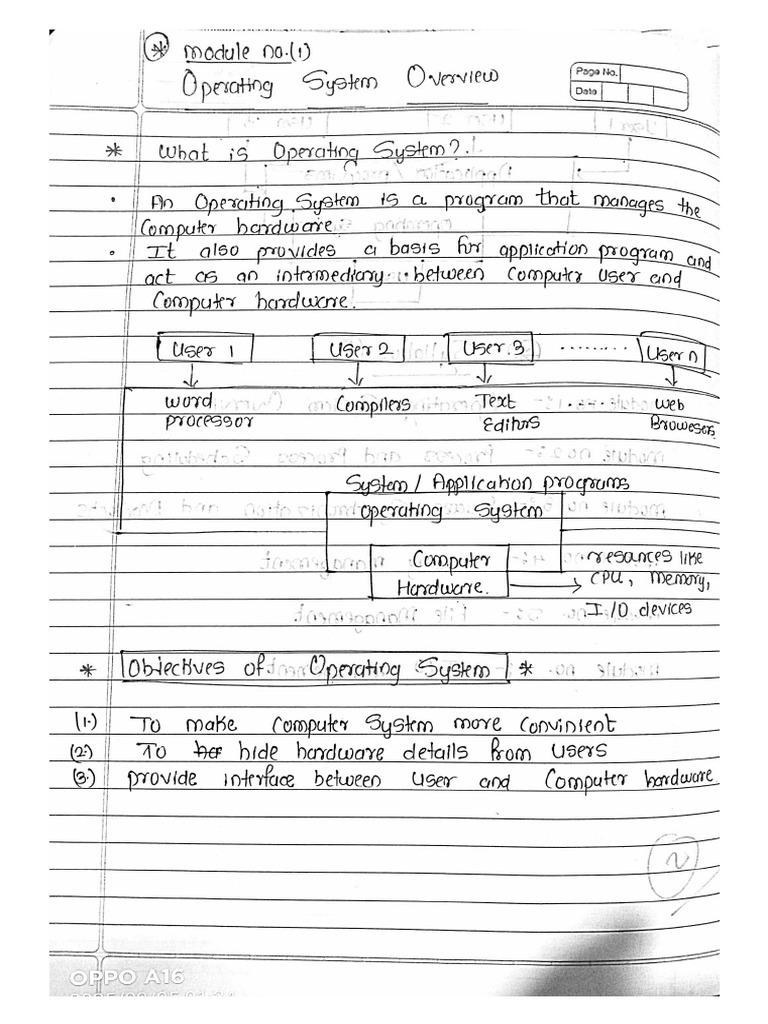 * module no.(1)
Operating System Overview
Page No.
Date
* What is Operating System?.
• An Operating System is a program that manages the
Computer hardware.
• It also provides a basis for application program and
act as an intermediary between Computer User and
Computer hardware.
User 1 User 2 User.3 ......... User n
word Compilers Text web
processor Editors Browesers
System / Application programs
Operating System
Computer resances like
Hardware. CPU, memory,
I/O devices
* Objectives of Operating System *
(1.) To make Computer System more Convinient
(2.) To hide hardware details from users
(3.) provide interface between user and Computer hardware
OPPO A16